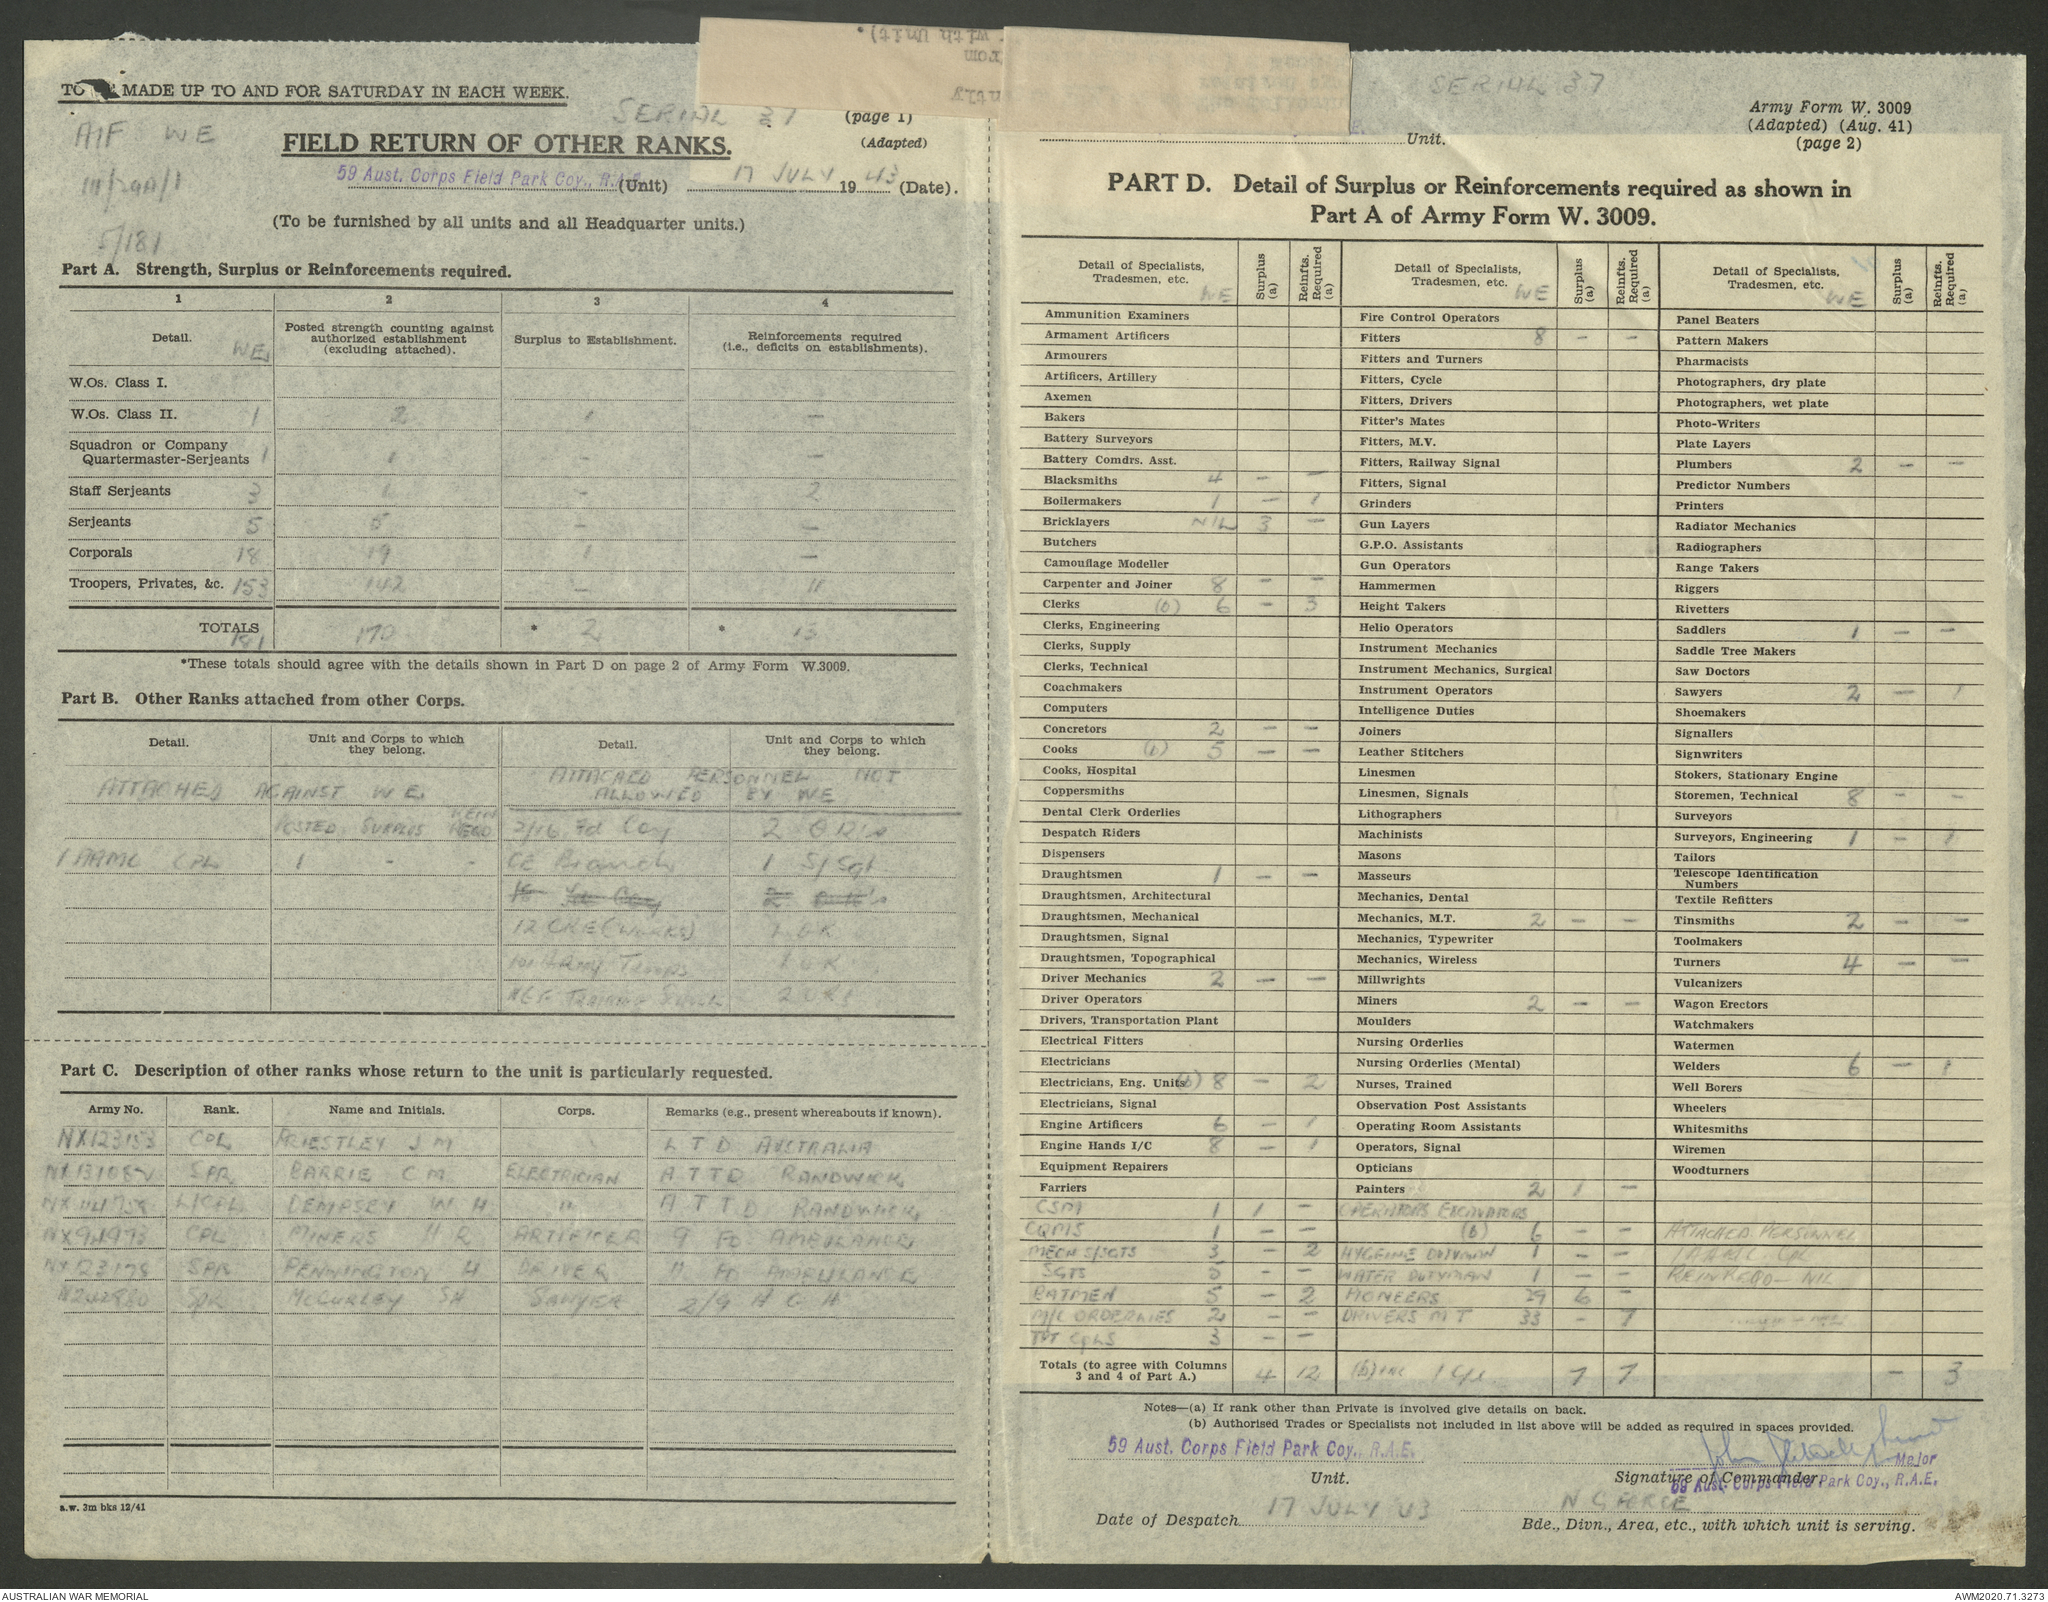 TO BE MADE UP TO AND FOR SATURDAY IN EACH WEEK.
SERIAL 37
(page 1)
AIF WE
FIELD RETURN OF OTHER RANKS.
(Adapted)
III/29A/1
59 Aust. Corps Field Park Coy., R.A.E. (Unit) 17 JULY 1943 (Date).
(To be furnished by all units and all Headquarter units.)
5/181
Part A. Strength, Surplus or Reinforcements required.
1 2 3 4
Detail. WE Posted strength counting against authorized establishment (excluding attached). Surplus to Establishment. Reinforcements required (i.e., deficits on establishments).
W.Os. Class I.
W.Os. Class II. 1 2 1 —
Squadron or Company
Quartermaster-Serjeants 1 1 - —
Staff Serjeants 3 1 - 2
Serjeants 5 5 - —
Corporals 18 19 1 —
Troopers, Privates, &c. 153 142 — 11
TOTALS 181 170 * 2 * 13
*These totals should agree with the details shown in Part D on page 2 of Army Form W.3009.
Part B. Other Ranks attached from other Corps.
Detail. Unit and Corps to which they belong. Detail. Unit and Corps to which they belong.
ATTACHED AGAINST WE ATTACHED PERSONNEL NOT
ALLOWED BY WE
POSTED SURPLUS REIN REQD 2/16 Fd Coy 2 ORs
1 AAMC CPL 1 - - CE Branch 1 S/Sgt
12 CRE (WORKS) 1 OR
Army Troops 1 OR
TRAINING SCHOOL 2 ORs
Part C. Description of other ranks whose return to the unit is particularly requested.
Army No. Rank. Name and Initials. Corps. Remarks (e.g., present whereabouts if known).
NX123153 CPL PRIESTLEY J M L T D AUSTRALIA
SPR BARRIE C M ELECTRICIAN A T T D RANDWICK
L/CPL DEMPSEY W H " A T T D RANDWICK
NX94973 CPL MINERS H R ARTIFICER 9 FD AMBULANCE
NX123178 SPR PENNINGTON H DRIVER 11 FD AMBULANCE
SPR McCURLEY S H SAWYER 2/9 A G H
a.w. 3m bks 12/41
SERIAL 37
Army Form W. 3009
(Adapted) (Aug. 41)
(page 2)
Unit.
PART D. Detail of Surplus or Reinforcements required as shown in
Part A of Army Form W. 3009.
Detail of Specialists, Tradesmen, etc. WE Surplus (a) Reinfts. Required (a)
Ammunition Examiners
Armament Artificers
Armourers
Artificers, Artillery
Axemen
Bakers
Battery Surveyors
Battery Comdrs. Asst.
Blacksmiths 4 — —
Boilermakers 1 — 1
Bricklayers NIL 3 —
Butchers
Camouflage Modeller
Carpenter and Joiner 8 — —
Clerks (b) 6 — 3
Clerks, Engineering
Clerks, Supply
Clerks, Technical
Coachmakers
Computers
Concretors 2 — —
Cooks (b) 5 — —
Cooks, Hospital
Coppersmiths
Dental Clerk Orderlies
Despatch Riders
Dispensers
Draughtsmen 1 — —
Draughtsmen, Architectural
Draughtsmen, Mechanical
Draughtsmen, Signal
Draughtsmen, Topographical
Driver Mechanics 2 — —
Driver Operators
Drivers, Transportation Plant
Electrical Fitters
Electricians
Electricians, Eng. Units (b) 8 — 2
Electricians, Signal
Engine Artificers 6 — 1
Engine Hands I/C 8 — 1
Equipment Repairers
Farriers
CSM 1 1 —
CQMS 1 — —
MECH S/SGTS 3 — 2
SGTS 5 — —
BATMEN 5 — 2
M/C ORDERLIES 2 — —
TPT CPLS 3 — —
Totals (to agree with Columns 3 and 4 of Part A.) 4 12
Detail of Specialists, Tradesmen, etc. WE Surplus (a) Reinfts. Required (a)
Fire Control Operators
Fitters 8 — —
Fitters and Turners
Fitters, Cycle
Fitters, Drivers
Fitter's Mates
Fitters, M.V.
Fitters, Railway Signal
Fitters, Signal
Grinders
Gun Layers
G.P.O. Assistants
Gun Operators
Hammermen
Height Takers
Helio Operators
Instrument Mechanics
Instrument Mechanics, Surgical
Instrument Operators
Intelligence Duties
Joiners
Leather Stitchers
Linesmen
Linesmen, Signals
Lithographers
Machinists
Masons
Masseurs
Mechanics, Dental
Mechanics, M.T. 2 — —
Mechanics, Typewriter
Mechanics, Wireless
Millwrights
Miners 2 — —
Moulders
Nursing Orderlies
Nursing Orderlies (Mental)
Nurses, Trained
Observation Post Assistants
Operating Room Assistants
Operators, Signal
Opticians
Painters 2 1 —
OPERATORS EXCAVATORS
(b) 6 — —
HYGEINE DUTYMAN 1 — —
WATER DUTYMAN 1 — —
PIONEERS 29 6 —
DRIVERS M T 33 - 7
(b) inc 1 Cpl 7 7
Detail of Specialists, Tradesmen, etc. WE Surplus (a) Reinfts. Required (a)
Panel Beaters
Pattern Makers
Pharmacists
Photographers, dry plate
Photographers, wet plate
Photo-Writers
Plate Layers
Plumbers 2 — —
Predictor Numbers
Printers
Radiator Mechanics
Radiographers
Range Takers
Riggers
Rivetters
Saddlers 1 — —
Saddle Tree Makers
Saw Doctors
Sawyers 2 — 1
Shoemakers
Signallers
Signwriters
Stokers, Stationary Engine
Storemen, Technical 8 - -
Surveyors
Surveyors, Engineering 1 — 1
Tailors
Telescope Identification Numbers
Textile Refitters
Tinsmiths 2 — —
Toolmakers
Turners 4 — —
Vulcanizers
Wagon Erectors
Watchmakers
Watermen
Welders 6 — 1
Well Borers
Wheelers
Whitesmiths
Wiremen
Woodturners
ATTACHED PERSONNEL
1 AAMC CPL
REIN REQD — NIL
— 3
Notes—(a) If rank other than Private is involved give details on back.
(b) Authorised Trades or Specialists not included in list above will be added as required in spaces provided.
59 Aust. Corps Field Park Coy., R.A.E.
Unit.
Major
Signature of Commander.
59 Aust. Corps Field Park Coy., R.A.E.
Date of Despatch 17 JULY 43
N G FORCE
Bde., Divn., Area, etc., with which unit is serving.
AUSTRALIAN WAR MEMORIAL
AWM2020.71.3273